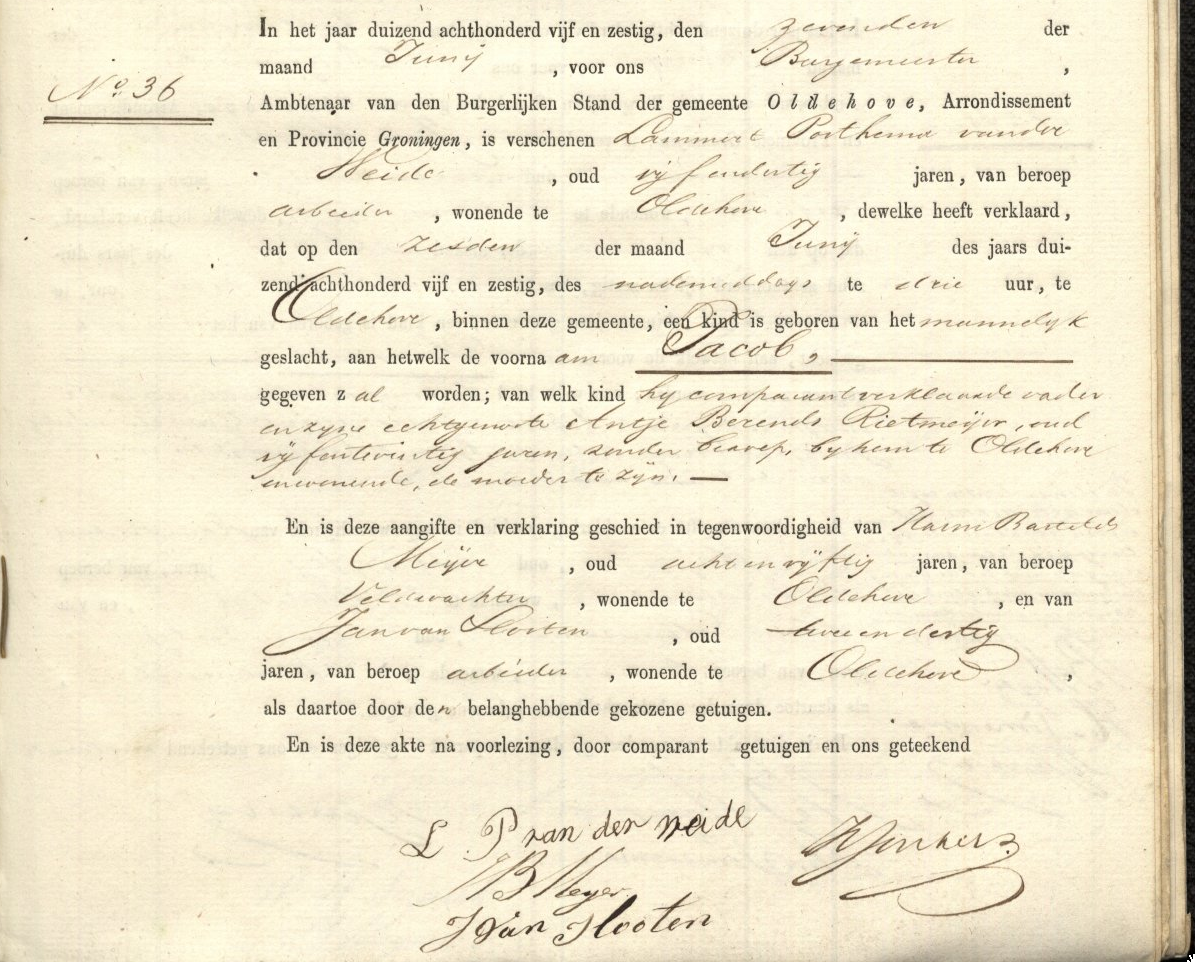 In het jaar duizend achthonderd vijf en zestig, den zevenden der
maand Junij, voor ons Burgemeester,
No. 36
Ambtenaar van den Burgerlijken Stand der gemeente Oldehove, Arrondissement
en Provincie Groningen, is verschenen Lammert Porthema van der
Weide, oud vijf en dertig jaren, van beroep
arbeider, wonende te Oldehove, dewelke heeft verklaard,
dat op den zesden der maand Junij des jaars dui-
zend achthonderd vijf en zestig, des nademiddags te drie uur, te
Oldehove, binnen deze gemeente, een kind is geboren van het mannelijk
geslacht, aan hetwelk de voornaam Jacob,
gegeven zal worden; van welk kind hij comparant verklaarde vader
en zijne echtgenoote Antje Berends Rietmeijer, oud
vijf en twintig jaren, zonder beroep, bij hem te Oldehove
inwonende, de moeder te zijn. —
En is deze aangifte en verklaring geschied in tegenwoordigheid van Harm Bartelds
Meijer, oud acht en vijftig jaren, van beroep
Veldwachter, wonende te Oldehove, en van
Jan van Slooten, oud twee en dertig
jaren, van beroep arbeider, wonende te Oldehove,
als daartoe door den belanghebbende gekozene getuigen.
En is deze akte na voorlezing, door comparant getuigen en ons geteekend
L P van der weide
HB Meyer
J van Slooten